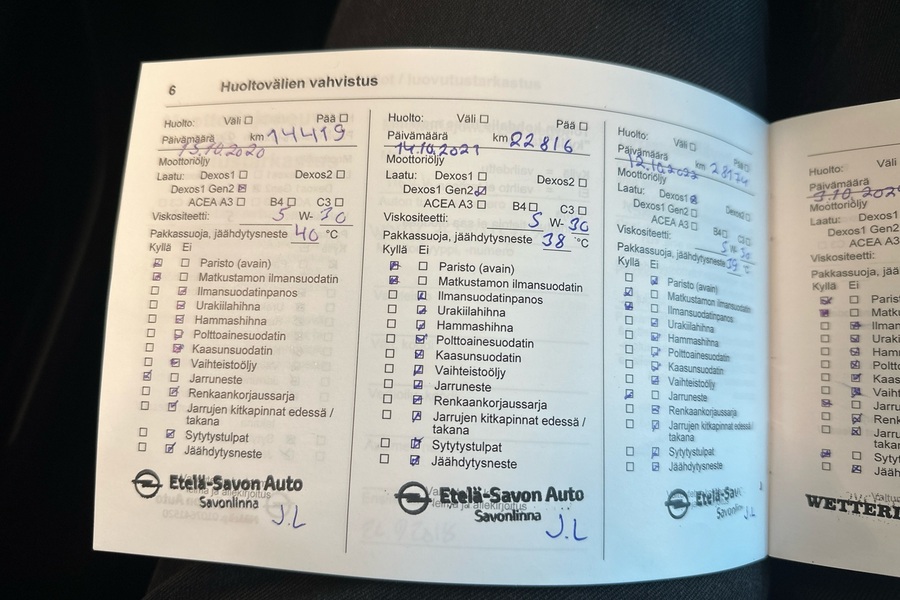 6 Huoltovälien vahvistus
Huolto: Väli Pää
Päivämäärä km 14419
13.10.2020
Moottoriöljy
Laatu: Dexos1 Dexos2
Dexos1 Gen2
ACEA A3 B4 C3
Viskositeetti: 5 W- 30
Pakkassuoja, jäähdytysneste 40 °C
Kyllä Ei
Paristo (avain)
Matkustamon ilmansuodatin
Ilmansuodatinpanos
Urakiilahihna
Hammashihna
Polttoainesuodatin
Kaasunsuodatin
Vaihteistoöljy
Jarruneste
Renkaankorjaussarja
Jarrujen kitkapinnat edessä /
takana
Sytytystulpat
Jäähdytysneste
Etelä-Savon Auto
Savonlinna
J.L
Huolto: Väli Pää
Päivämäärä km 22816
14.10.2021
Moottoriöljy
Laatu: Dexos1 Dexos2
Dexos1 Gen2
ACEA A3 B4 C3
Viskositeetti: 5 W- 30
Pakkassuoja, jäähdytysneste 38 °C
Kyllä Ei
Paristo (avain)
Matkustamon ilmansuodatin
Ilmansuodatinpanos
Urakiilahihna
Hammashihna
Polttoainesuodatin
Kaasunsuodatin
Vaihteistoöljy
Jarruneste
Renkaankorjaussarja
Jarrujen kitkapinnat edessä /
takana
Sytytystulpat
Jäähdytysneste
Etelä-Savon Auto
Savonlinna
J.L
Huolto: Väli Pää
Päivämäärä km
Moottoriöljy
Laatu: Dexos1 Dexos2
Dexos1 Gen2
ACEA A3 B4 C3
Viskositeetti: 5 W- 30
Pakkassuoja, jäähdytysneste 39 °C
Kyllä Ei
Paristo (avain)
Matkustamon ilmansuodatin
Ilmansuodatinpanos
Urakiilahihna
Hammashihna
Polttoainesuodatin
Kaasunsuodatin
Vaihteistoöljy
Jarruneste
Renkaankorjaussarja
Jarrujen kitkapinnat edessä /
takana
Sytytystulpat
Jäähdytysneste
Etelä-Sav
Savonlinna
J.L
Huolto: Väli
Päivämäärä
Moottoriöljy
Laatu: Dexos1
Dexos1
ACEA A3
Viskositeetti:
Pakkassuoja, jää
Kyllä Ei
Parist
Matk
Ilman
Uraki
Hamm
Poltt
Kaas
Vaiht
Jarru
Renk
Jarru
taka
Syty
Jääh
WETTERI